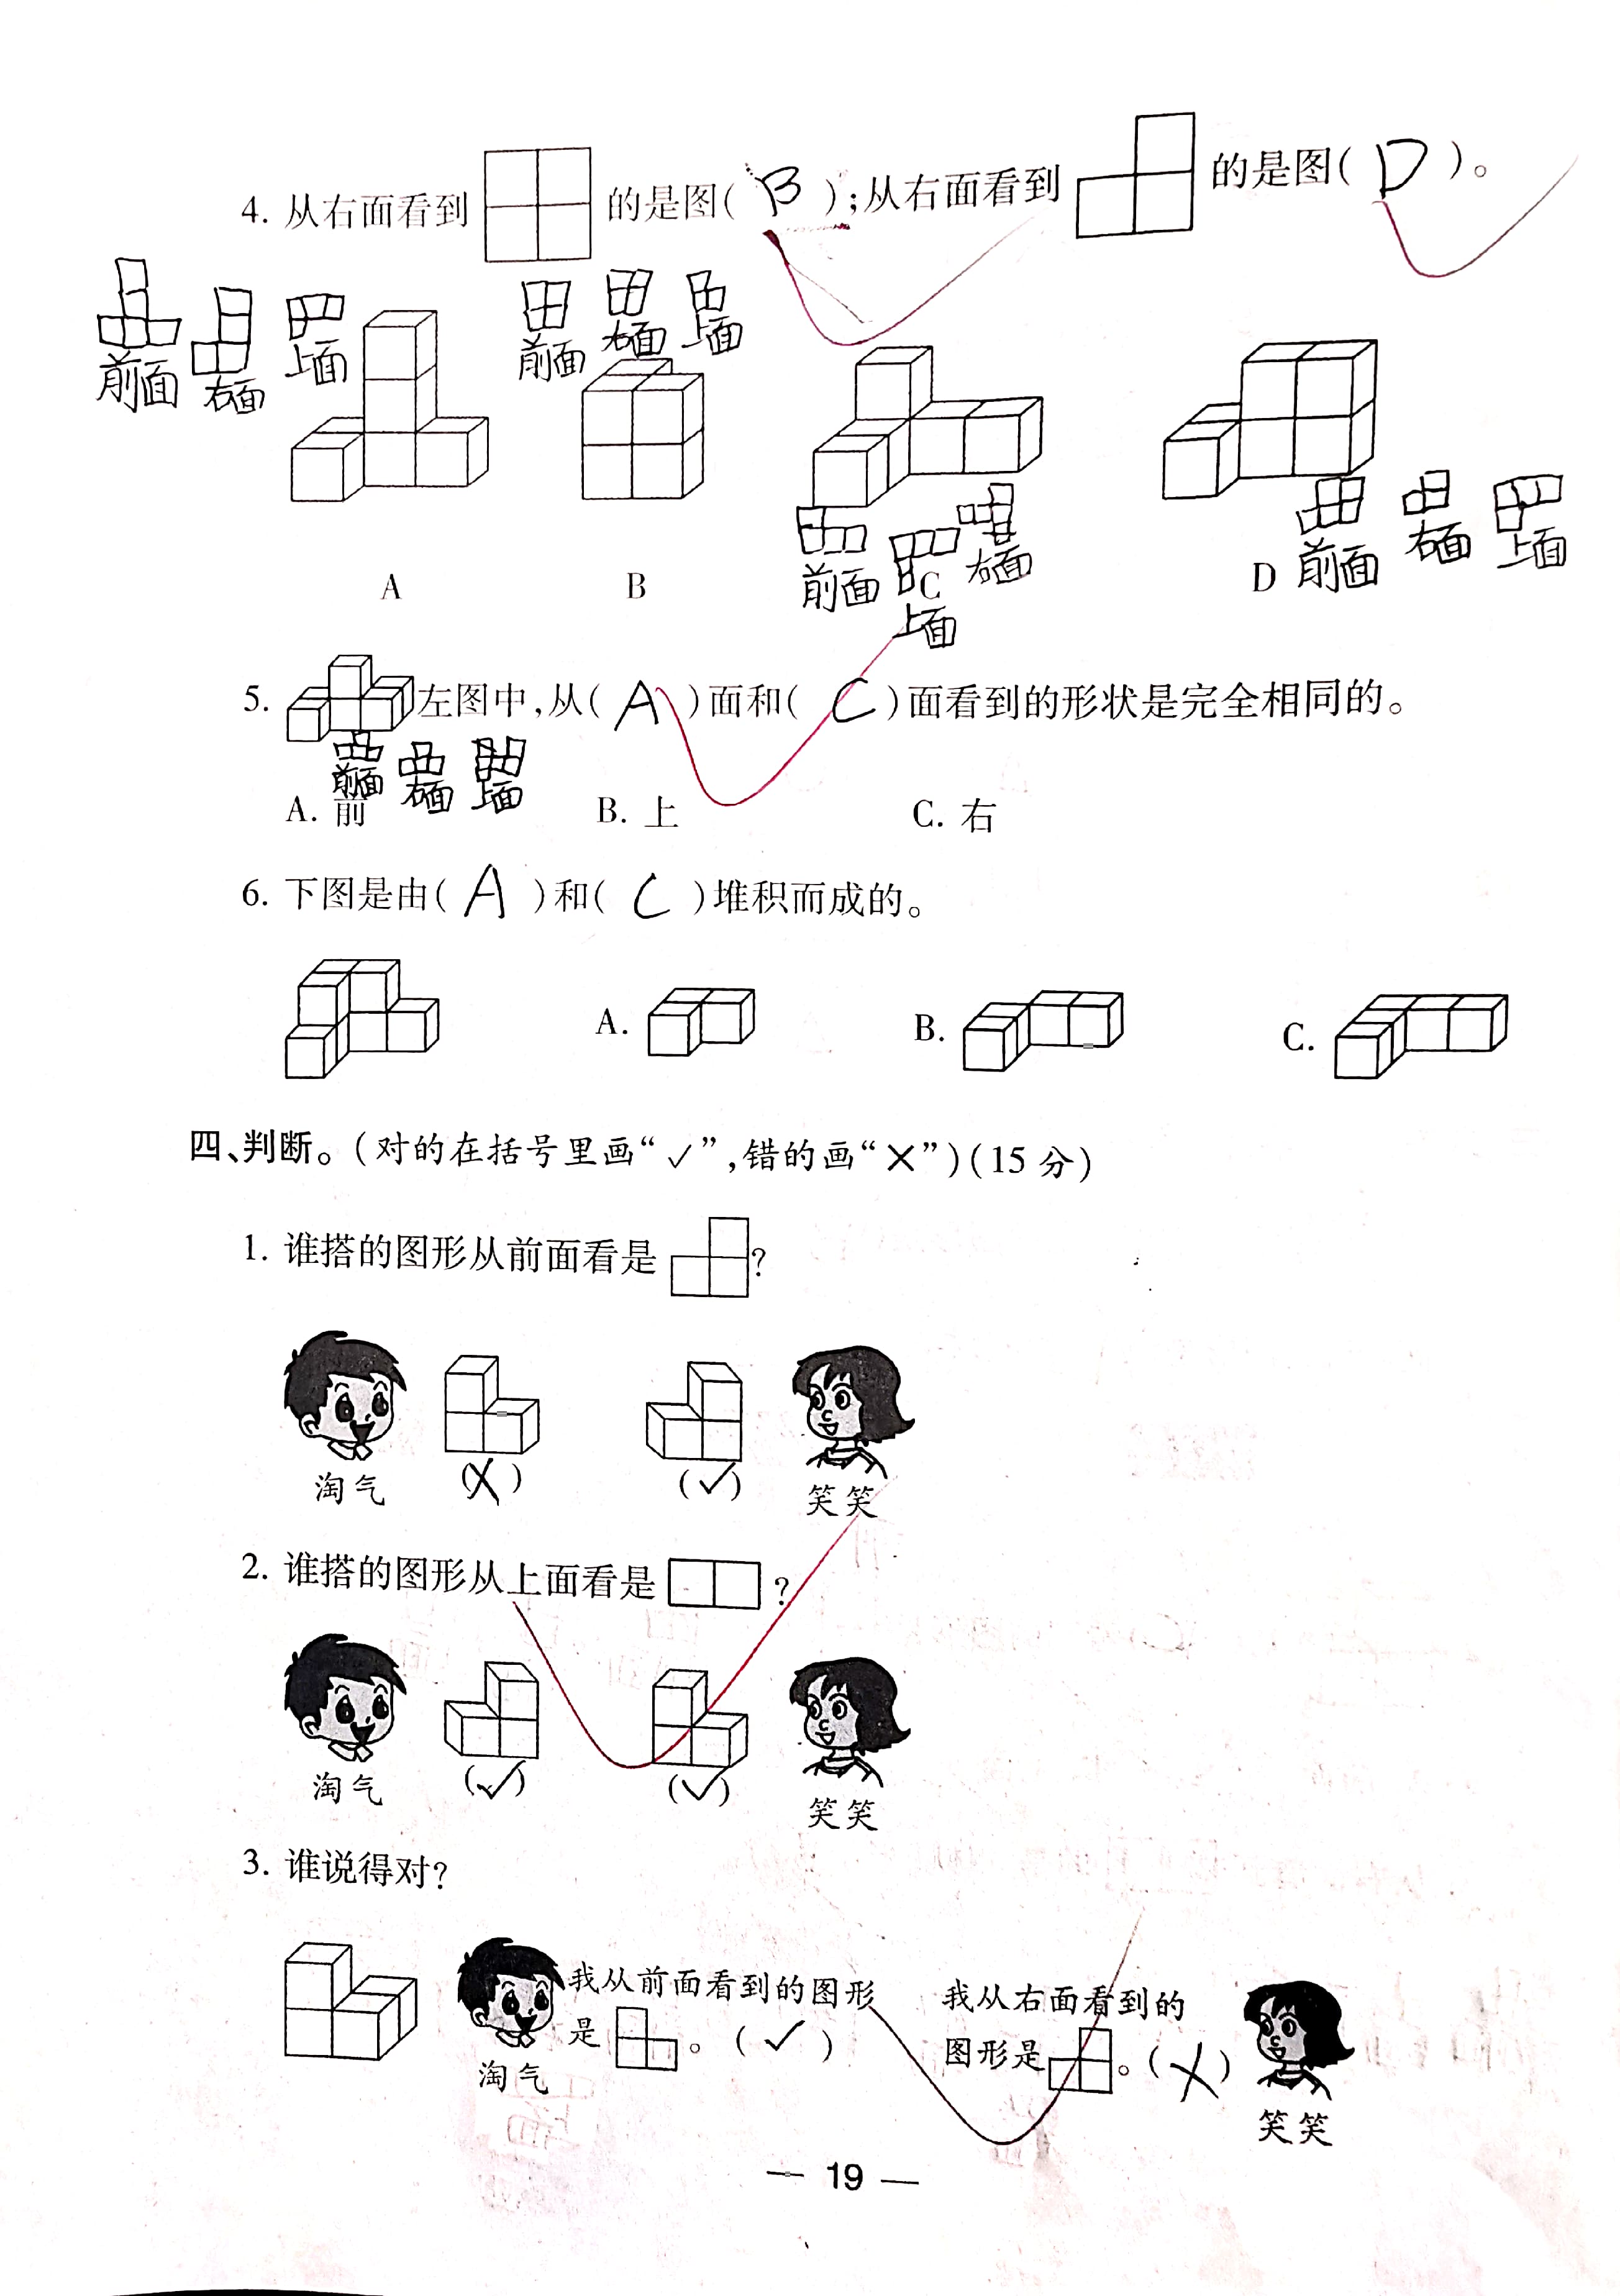 4. 从右面看到 的是图( B );从右面看到 的是图( D )。
前面 右面 上面 前面 右面 上面
前面 上面 右面 前面 右面 上面
A B C D
5. 左图中,从( A )面和( C )面看到的形状是完全相同的。
前面 右面 上面
A. 前 B. 上 C. 右
6. 下图是由( A )和( C )堆积而成的。
A. B. C.
四、判断。(对的在括号里画“✓”,错的画“×”)(15 分)
1. 谁搭的图形从前面看是 ?
淘气 (×) (✓) 笑笑
2. 谁搭的图形从上面看是 ?
淘气 (✓) (✓) 笑笑
3. 谁说得对?
我从前面看到的图形
是 。( ✓ )
淘气
我从右面看到的
图形是 。(×)
笑笑
— 19 —